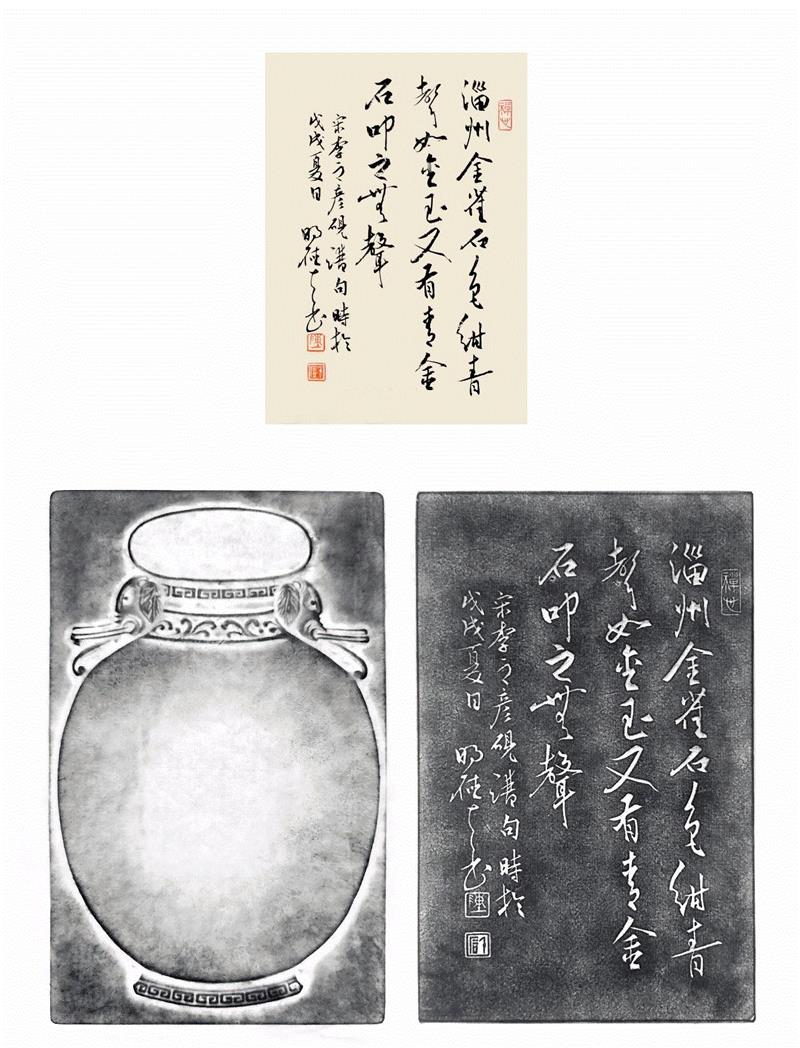 淄州金雀石色紺青
聲如金玉又有青金
石叩之無聲
宋李之彦硯譜句時於
戊戌夏日
淄州金雀石色紺青
聲如金玉又有青金
石叩之無聲
宋李之彦硯譜句時於
戊戌夏日